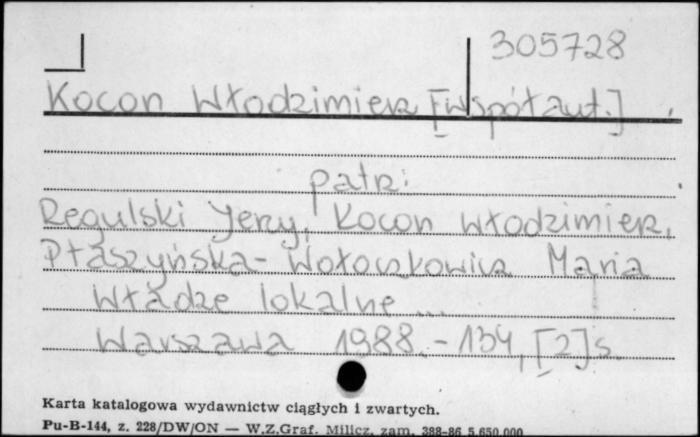 305728
Kocon Włodzimierz [współaut.]
patrz:
Regulski Jerzy, Kocon Włodzimierz,
Ptaszyńska-Wołoczkowicz Maria
Władze lokalne ...
Warszawa 1988. - 134, [2] s.
Karta katalogowa wydawnictw ciągłych i zwartych.
Pu-B-144, z. 228/DW/ON — W.Z.Graf. Milicz, zam. 388-86 5.650.000